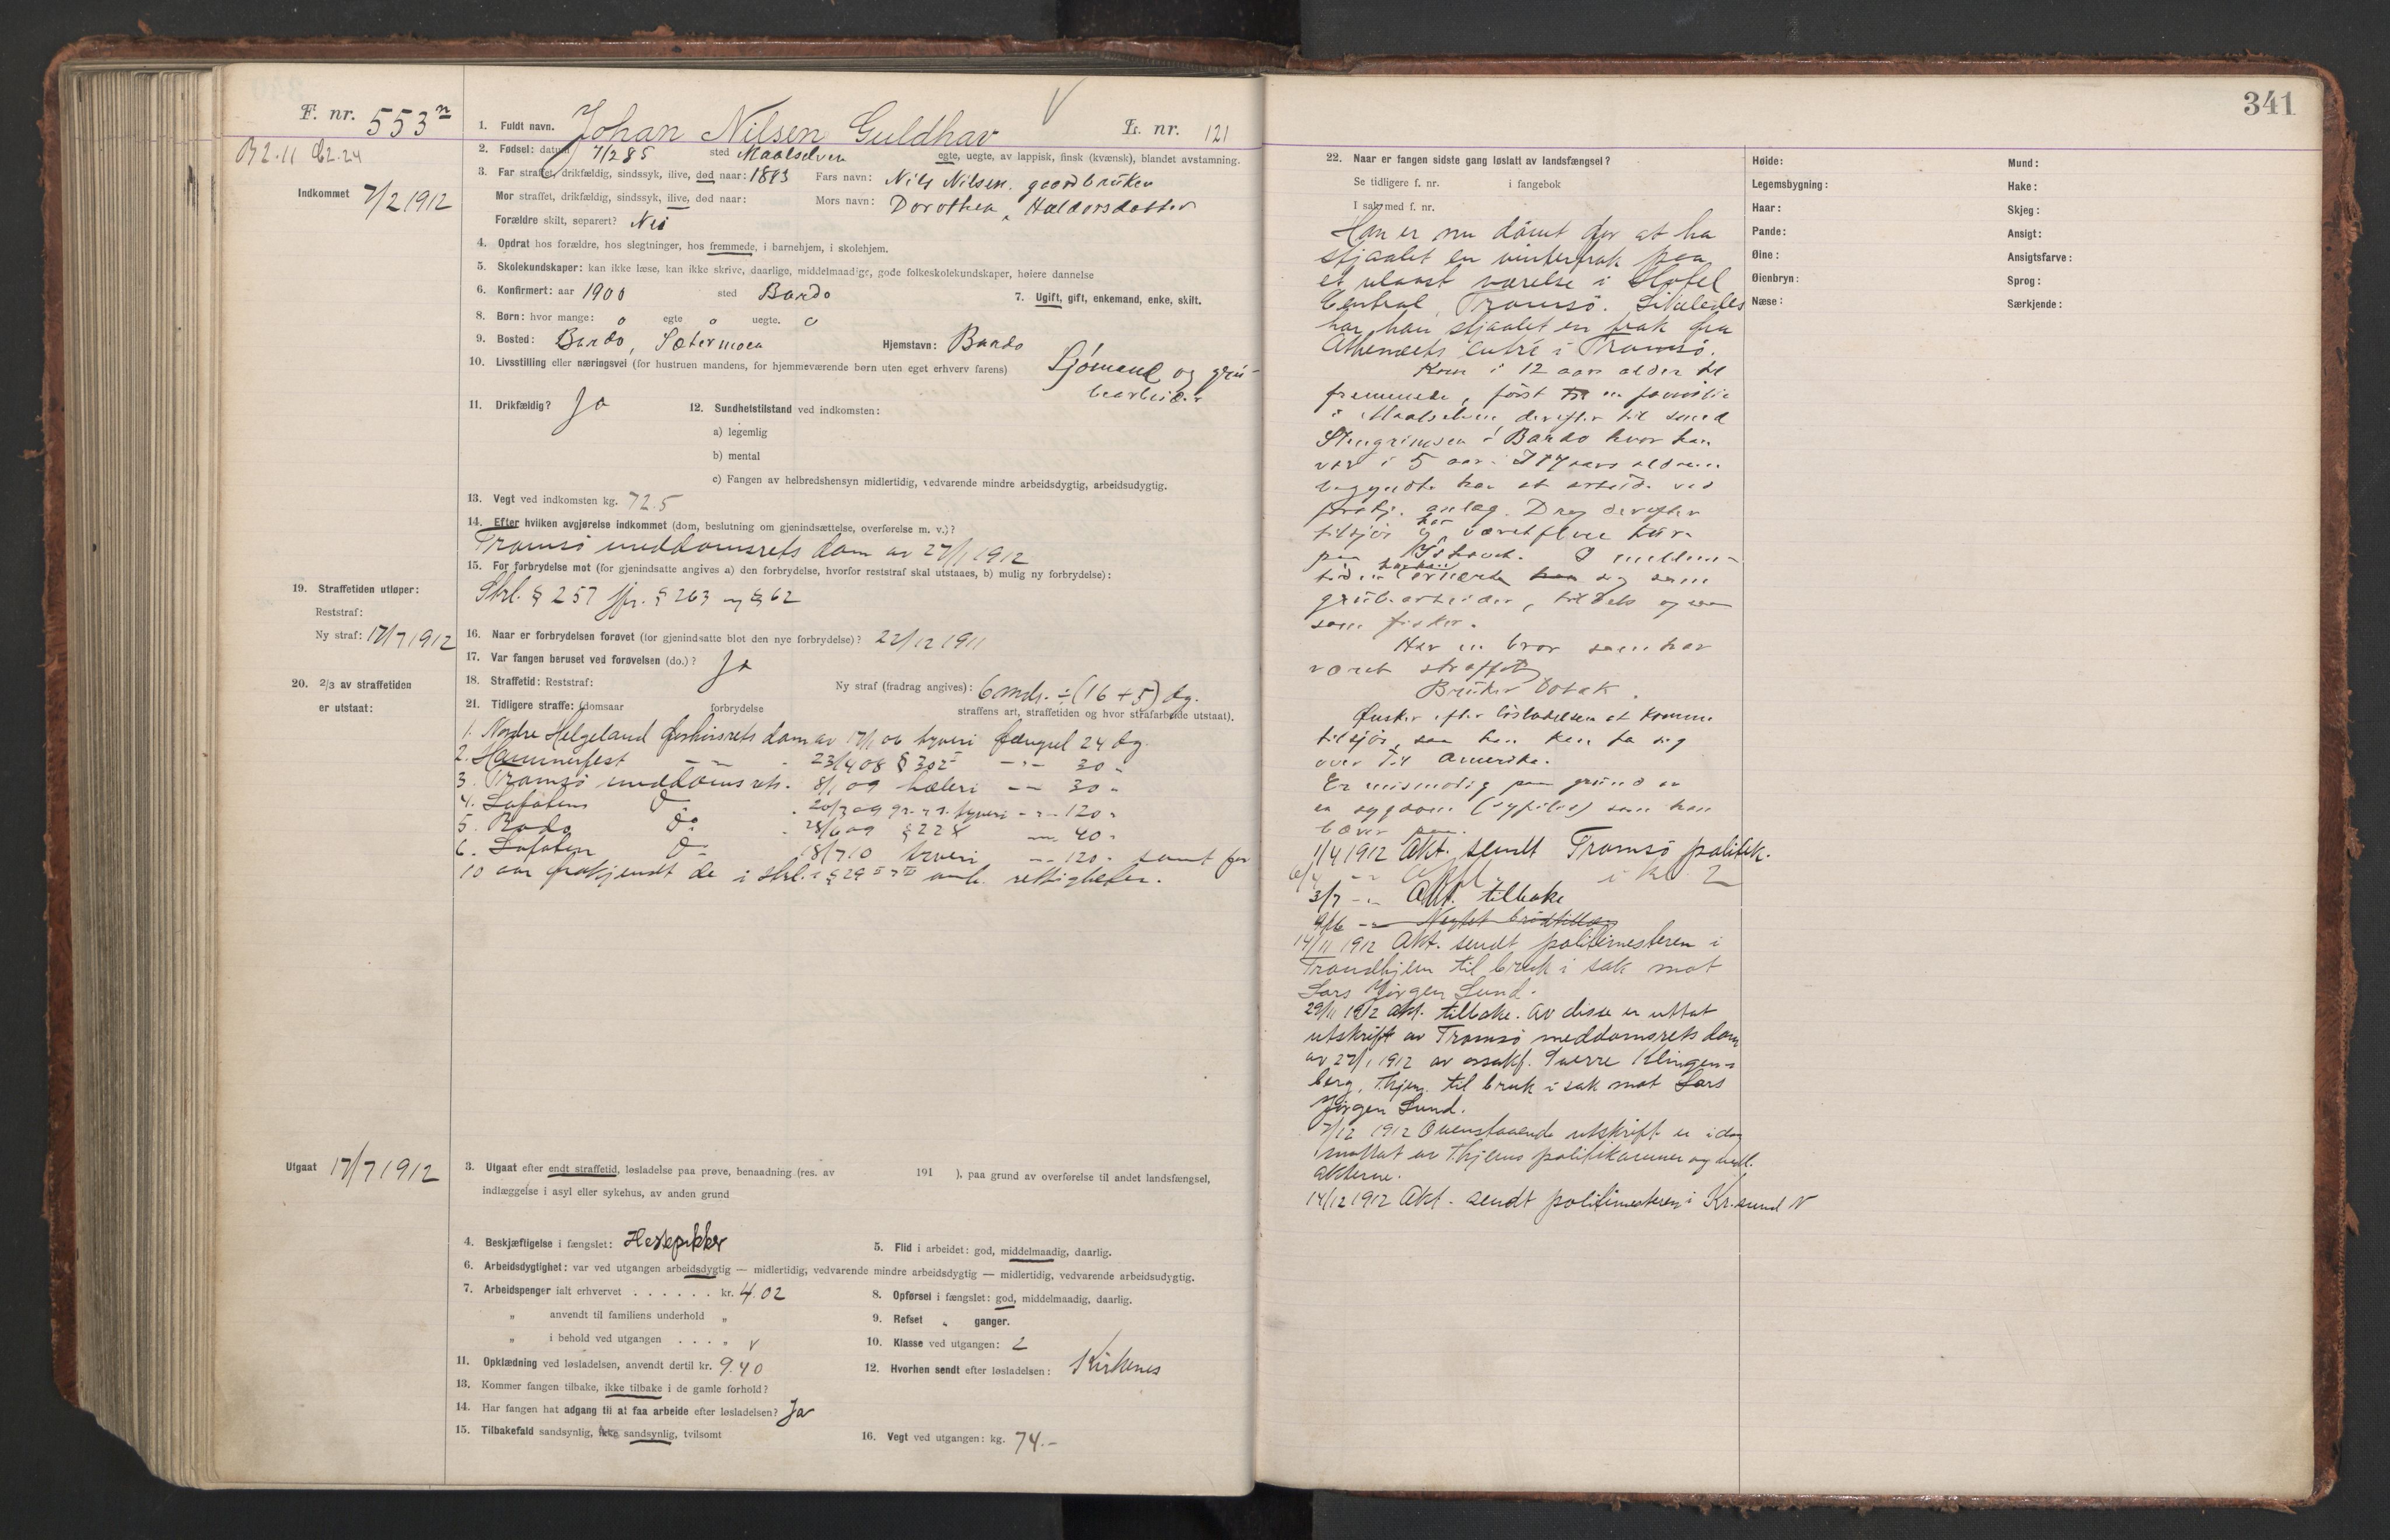 F. nr. 553 n
B 2.11 C2.24
Indkommet 7/2 1912
1. Fuldt navn. Johan Nilsen Guldhav L. nr. 121
2. Fødsel: datum 7/2 85 sted Maalselven egte, uegte, av lappisk, finsk (kvænsk), blandet avstamning.
3. Far straffet, drikfældig, sindssyk, ilive, død naar: 1893 Fars navn: Nils Nilsen. gaardbruker
Mor straffet, drikfældig, sindssyk, ilive, død naar: Mors navn: Dorothea Haldorsdatter
Forældre skilt, separert? Nei
4. Opdrat hos forældre, hos slegtninger, hos fremmede, i barnehjem, i skolehjem.
5. Skolekundskaper: kan ikke læse, kan ikke skrive, daarlige, middelmaadige, gode folkeskolekundskaper, høiere dannelse
6. Konfirmert: aar 1900 sted Bardo 7. Ugift, gift, enkemand, enke, skilt.
8. Børn: hvor mange: 0 egte 0 uegte. 0
9. Bosted: Bardo, Sætermoen Hjemstavn: Bardo
10. Livsstilling eller næringsvei (for hustruen mandens, for hjemmeværende børn uten eget erhverv farens) Sjømand og gru-
bearbeider
11. Drikfældig? Ja 12. Sundhetstilstand ved indkomsten:
a) legemlig
b) mental
c) Fangen av helbredshensyn midlertidig, vedvarende mindre arbeidsdygtig, arbeidsudygtig.
13. Vegt ved indkomsten kg. 72.5
14. Efter hvilken avgjørelse indkommet (dom, beslutning om gjenindsættelse, overførelse m. v.)?
Tromsø meddomsrets dom av 27/1 1912
15. For forbrydelse mot (for gjenindsatte angives a) den forbrydelse, hvorfor reststraf skal utstaaes, b) mulig ny forbrydelse):
Strl. § 257 jfr. § 263 og § 62
19. Straffetiden utløper:
Reststraf:
Ny straf: 17/7 1912
16. Naar er forbrydelsen forøvet (for gjenindsatte blot den nye forbrydelse)? 22/12 1911
17. Var fangen beruset ved forøvelsen (do.)? Ja
20. 2/3 av straffetiden
er utstaat:
18. Straffetid: Reststraf: Ny straf (fradrag angives): 6 mdr. ÷ (16 + 5) dg.
21. Tidligere straffe: (domsaar forbrydelse straffens art, straffetiden og hvor strafarbeide utstaat).
1. Nordre Helgeland forhørsrets dom av 17/1 06 tyveri fængsel 24 dg.
2. Hammerfest -"- - 23/4 08 § 302 I -"- 30 -
3. Tromsø meddomsrets. 8/1 09 hæleri -"- 30 -
4. Lofotens do - 20/3 09 gr. tyveri -"- 120 -
5. Bodø do - 28/6 09 § 228 -"- 40 -
6. Lofoten do 18/7 10 tyveri -"- 120 - samt for
10 aar frakjendt de i strl.s § 29 I og II omh. rettigheter.
Utgaat 17/7 1912
3. Utgaat efter endt straffetid, løsladelse paa prøve, benaadning (res. av 191 ), paa grund av overførelse til andet landsfængsel,
indlæggelse i asyl eller sykehus, av anden grund
4. Beskjæftigelse i fængslet: 5. Flid i arbeidet: god, middelmaadig, daarlig.
6. Arbeidsdygtighet: var ved utgangen arbeidsdygtig — midlertidig, vedvarende mindre arbeidsdygtig — midlertidig, vedvarende arbeidsudygtig.
7. Arbeidspenger ialt erhvervet . . . . . . kr. 4.02 8. Opførsel i fængslet: god, middelmaadig, daarlig.
„ anvendt til familiens underhold „ 9. Refset „ ganger.
„ i behold ved utgangen . . . . „ v 10. Klasse ved utgangen: 2
11. Opklædning ved løsladelsen, anvendt dertil kr. 9.40 12. Hvorhen sendt efter løsladelsen: Kirkenes
13. Kommer fangen tilbake, ikke tilbake i de gamle forhold?
14. Har fangen hat adgang til at faa arbeide efter løsladelsen? Ja
15. Tilbakefald sandsynlig, ikke sandsynlig, tvilsomt 16. Vegt ved utgangen: kg. 74.-
341
22. Naar er fangen sidste gang løslatt av landsfængsel?
Se tidligere f. nr. i fangebok
I sak med f. nr.
Høide: Mund:
Legemsbygning: Hake:
Haar: Skjeg:
Pande: Ansigt:
Øine: Ansigtsfarve:
Øienbryn: Sprog:
Næse: Særkjende:
Han er nu dømt for at ha
stjaalet en vinterfrak paa
et ulaast værelse i Hotel
Central, Tromsø. Likeledes
har han stjaalet en frak fra
Athenæets entré i Tromsø.
Kom i 12 aars alder til
fremmede, først til en familie
i Maalselven, derefter til smed
Stengrimsen i Bardo hvor han
var i 5 aar. I 17 aars alderen
begyndte han at arbeide ved
forskj. anlæg. Drog derefter
tilsjøs og har været flere ture
paa Ishavet. I mellem-
tiden har han ernært sig som
grubearbeider, tildels ogsaa
som fisker.
Har en bror som har
været straffet
Bruker tobak.
Ønsker efter løsladelsen at komme
tilsjøs, saa han kan ta sig
over til Amerika.
Er mismodig paa grund av
en sygdom (syfilis) som han
bærer paa.
1/4 1912 Akt. sendt Tromsø politik.
6/4 -"- Opfl. i kl. 2
3/7 -"- Akt. tilbake
-"- Negtet brødtillæg
14/11 1912 Akt. sendt politimesteren i
Trondhjem til bruk i sak mot
Lars Jørgen Lund.
29/11 1912 Akt. tilbake. Av disse er uttat
utskrift av Tromsø meddomsrets dom
av 27/1 1912 av ossakf. Sverre Klingen-
berg, Thjem til bruk i sak mot Lars
Jørgen Lund.
7/12 1912 Ovenstaaende utskrift er idag
mottat av Thjems politikammer og vedl.
akterne.
14/12 1912 Akt. sendt politimesteren i Kr.sund N